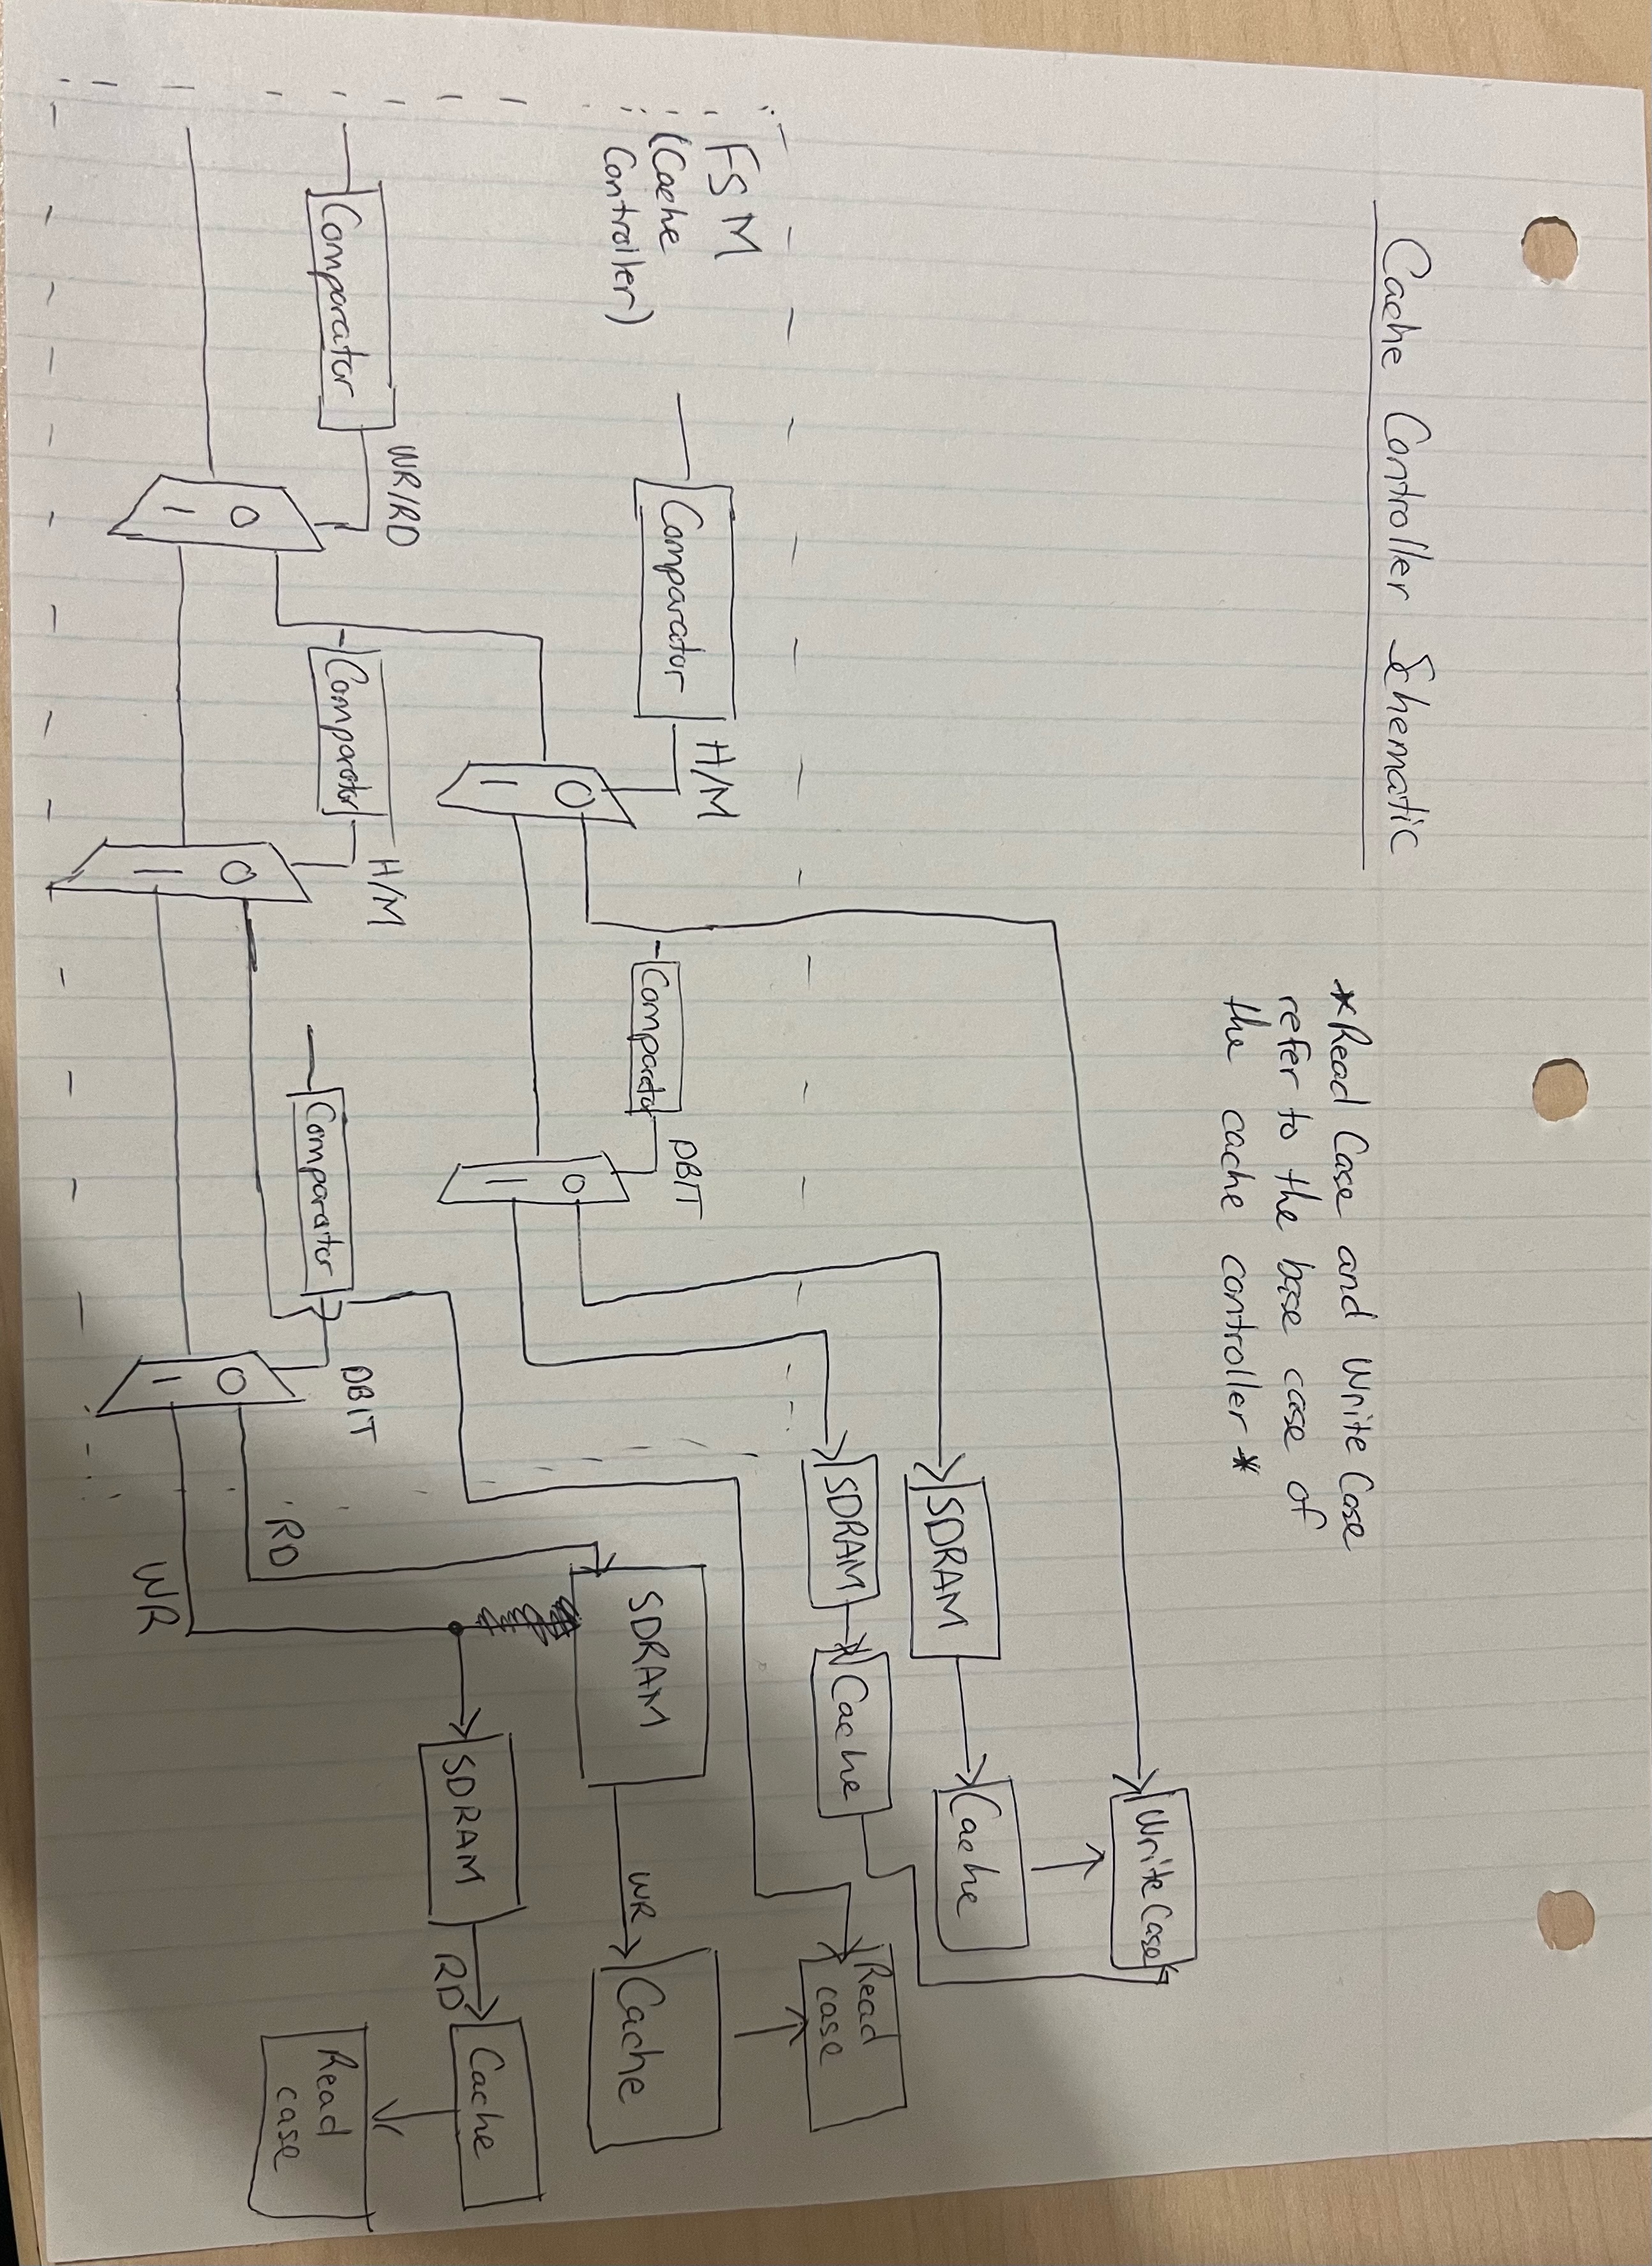 Cache Controller Schematic
*Read Case and Write Case
refer to the base case of
the cache controller *
Write Case
SDRAM
Cache
SDRAM
Cache
Read
case
FSM
(Cache
Controller)
Comparator
H/M
Comparator
DBIT
SDRAM
WR
Cache
0
1
0
1
SDRAM
RD
Cache
Comparator
WR/RD
Comparator
H/M
Comparator
DBIT
RD
Read
case
0
1
0
1
0
1
WR